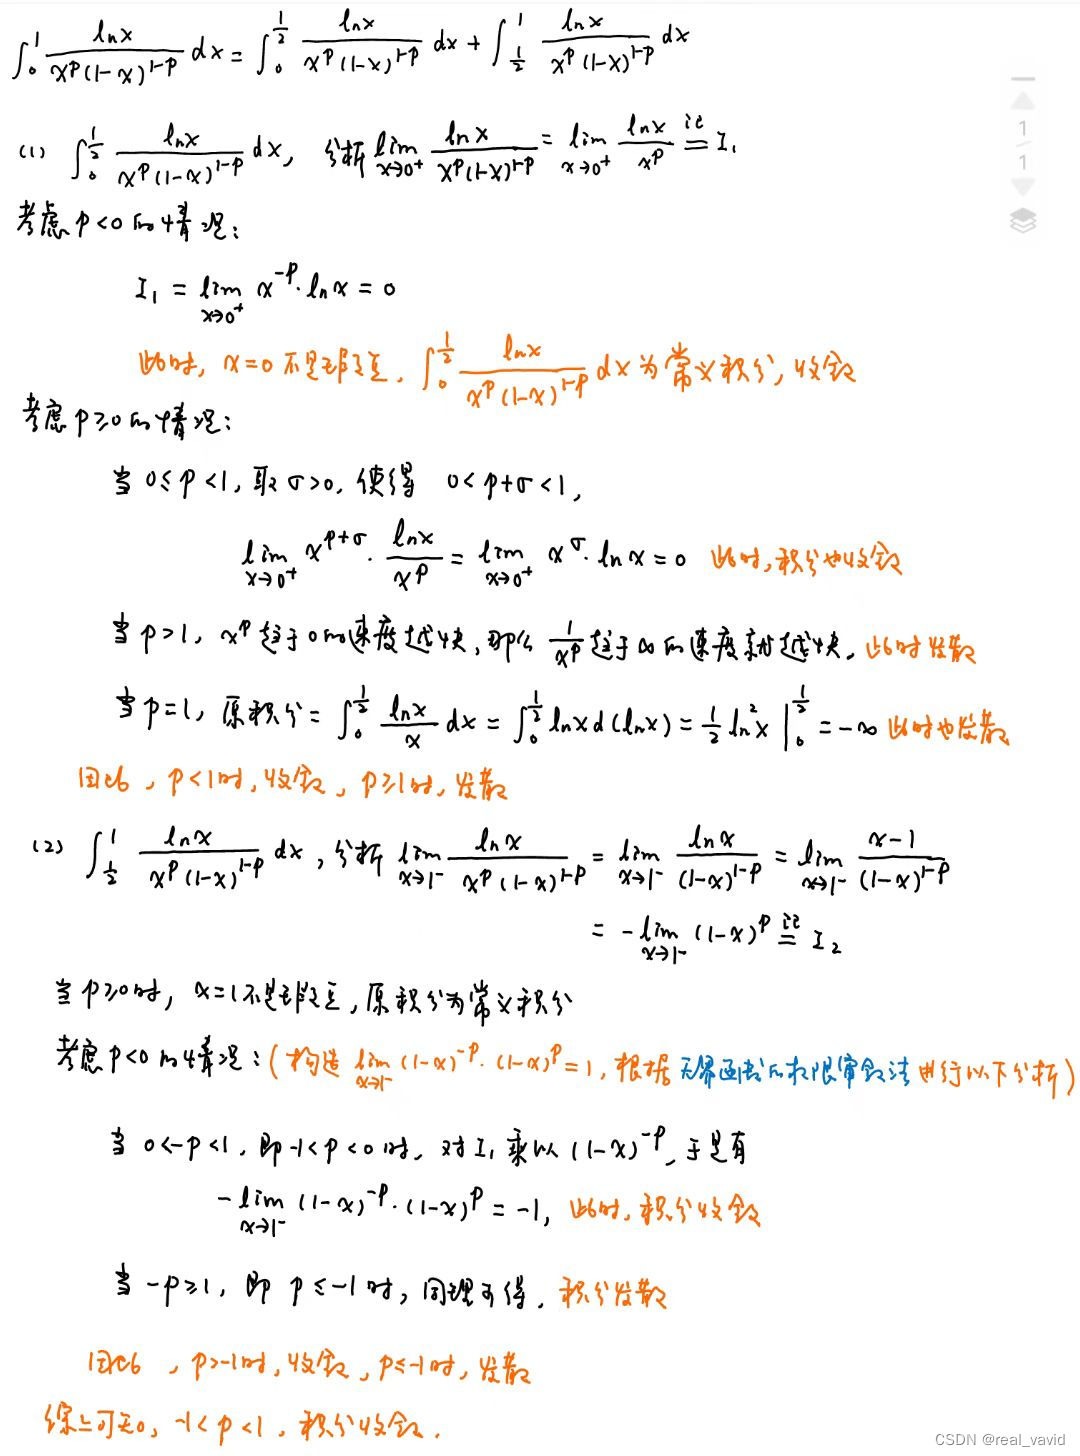 ∫₀¹ lnx/(x^p(1-x)^(1-p)) dx = ∫₀^(1/2) lnx/(x^p(1-x)^(1-p)) dx + ∫_(1/2)^1 lnx/(x^p(1-x)^(1-p)) dx
(1) ∫₀^(1/2) lnx/(x^p(1-x)^(1-p)) dx, 分析 lim_(x→0⁺) lnx/(x^p(1-x)^(1-p)) = lim_(x→0⁺) lnx/x^p 记= I₁
1
1
考虑 p<0 的情况:
I₁ = lim_(x→0⁺) x^(-p)·lnx = 0
此时, x=0 不是瑕点, ∫₀^(1/2) lnx/(x^p(1-x)^(1-p)) dx 为常义积分, 收敛
考虑 p≥0 的情况:
当 0≤p<1, 取 σ>0, 使得 0<p+σ<1,
lim_(x→0⁺) x^(p+σ)·lnx/x^p = lim_(x→0⁺) x^σ·lnx = 0 此时, 积分也收敛
当 p>1, x^p 趋于 0 的速度越快, 那么 1/x^p 趋于 ∞ 的速度就越快, 此时发散
当 p=1, 原积分 = ∫₀^(1/2) lnx/x dx = ∫₀^(1/2) lnx d(lnx) = 1/2 ln²x |₀^(1/2) = -∞ 此时也发散
因此, p<1时, 收敛, p≥1时, 发散
(2) ∫_(1/2)^1 lnx/(x^p(1-x)^(1-p)) dx, 分析 lim_(x→1⁻) lnx/(x^p(1-x)^(1-p)) = lim_(x→1⁻) lnx/(1-x)^(1-p) = lim_(x→1⁻) (x-1)/(1-x)^(1-p)
= -lim_(x→1⁻) (1-x)^p 记= I₂
当 p≥0时, x=1不是瑕点, 原积分为常义积分
考虑 p<0 的情况: (构造 lim_(x→1⁻) (1-x)^(-p)·(1-x)^p = 1, 根据无界函数的极限审敛法进行以下分析)
当 0<-p<1, 即 -1<p<0 时, 对 I₁ 乘以 (1-x)^(-p), 于是有
-lim_(x→1⁻) (1-x)^(-p)·(1-x)^p = -1, 此时, 积分收敛
当 -p≥1, 即 p≤-1 时, 同理可得, 积分发散
因此, p>-1时, 收敛, p≤-1时, 发散
综上可知, -1<p<1, 积分收敛.
CSDN @real_vavid